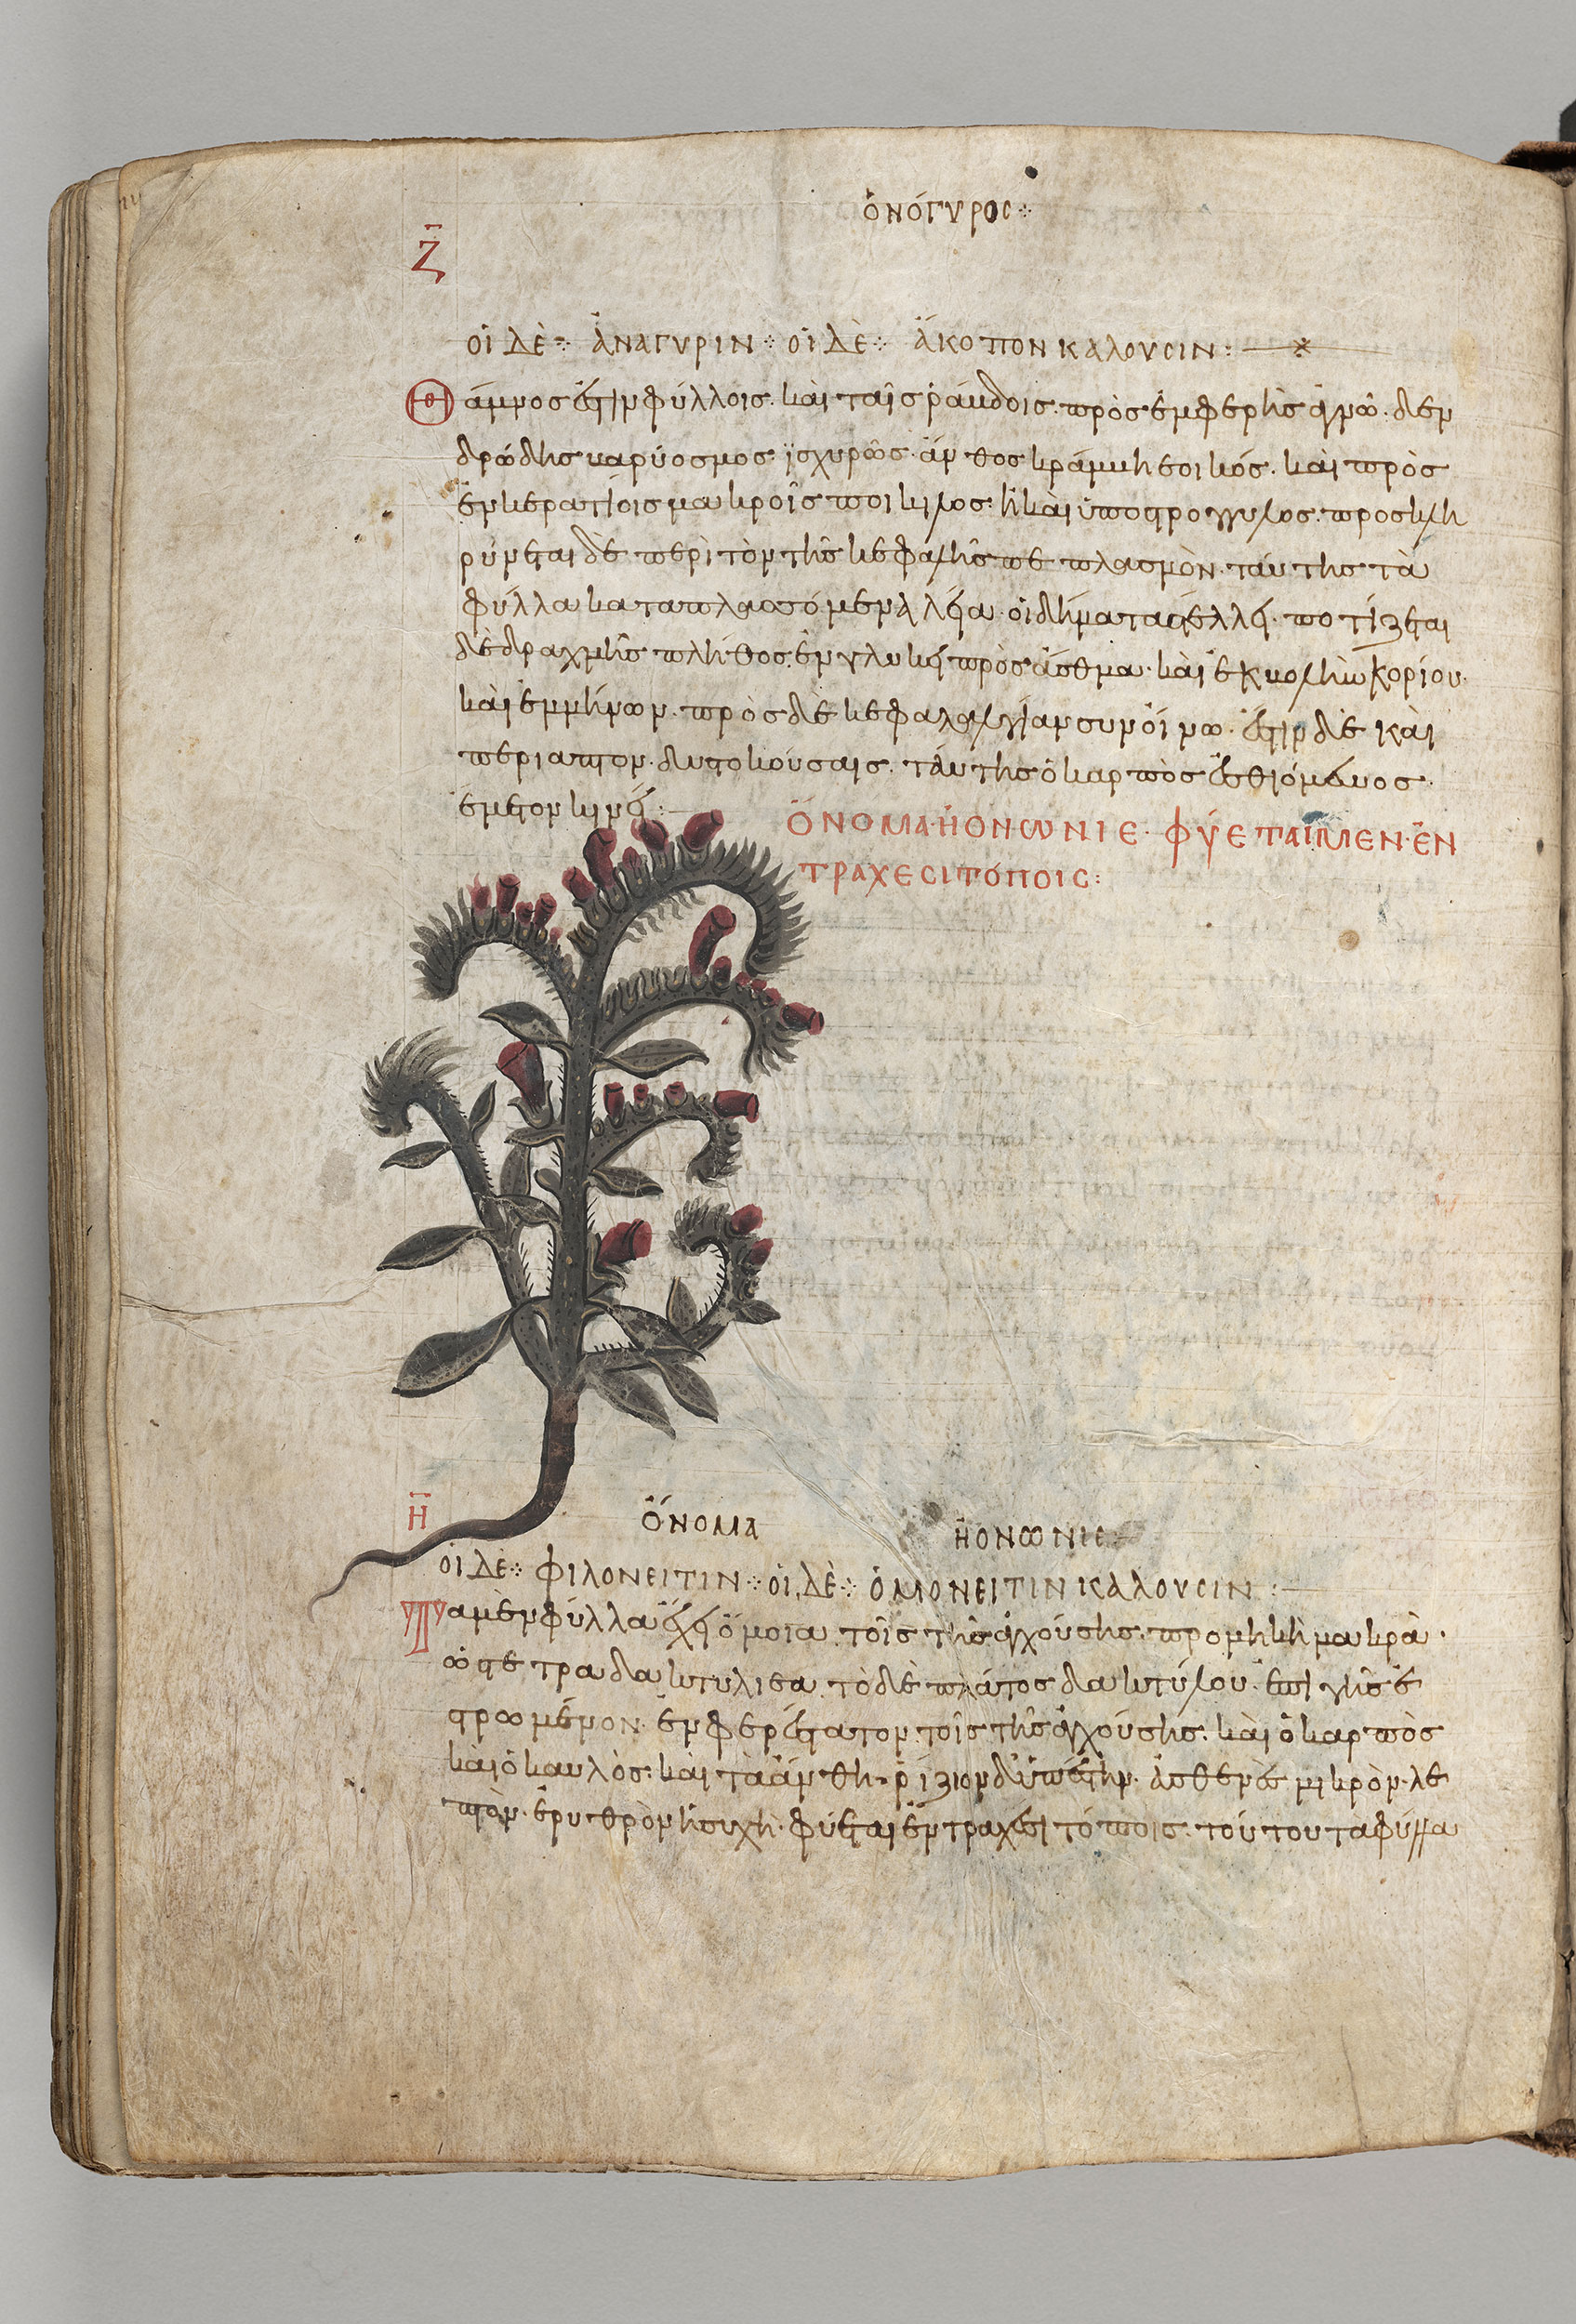 ὀνόγυρος
Ζ
οἱ δὲ ἀνάγυριν οἱ δὲ ἄκοπον καλουσιν
Θάμνος ἐστὶν φύλλοις. καὶ ταῖς ῥάβδοις. πρὸσεμφερὴς ἄγνω. δεν
δρώδης βαρύοσμος ἰσχυρῶς. ἄνθος κράμβη ἐοικός. καὶ πρὸς
ἐν κερατίοις μακροῖς ποικίλος. ἢ καὶ ὑποστρογγυλος. προσκλη
ρύνεται δὲ περὶ τὸν τῆς κεφαλῆς πε πλασμὸν. ταύτης τὰ
φύλλα καταπλασσόμενα λεῖα. οἰδήματα στέλλει. ποτίζεται
δὲ δραχμῆς πλῆθος. ἐν γλυκεῖ πρὸς ἄσθμα. καὶ ἐκβολὴν κορίου.
καὶ ἐμμήνων. πρὸς δὲ κεφαλαλγίαν συν οἴνω. ἔστιν δὲ καὶ
περιαπτον. δυστοκούσαις. ταύτης ὁ καρπὸς ἐσθιόμενος
ἔμετον κινεῖ
ὄνομα. ἡ ονωνιε. φύεται μεν. ἐν
τραχεσι τόποις
Η
ὄνομα ἡ ονωνιε
οἱ δὲ φιλονειτιν οἱ δὲ ὀμονειτιν καλουσιν
Τα μὲν φύλλα ἔχει ὅμοια τοῖς τῆς ἀγχούσης. προμήκη μακρὰ.
ὡσ τετραδακτυλιεα. τὸ δὲ πλάτος δακτύλου. ἐπὶ γῆς ἐ
στρωμένον. ἐμφερέστατον. τοῖς τῆς ἀγχούσης. καὶ ὁ καρπὸς
καὶ ὁ καυλὸς. καὶ τὰ ἄνθη. ῥίζιον δ' ὕπεστιν. ἀσθενές μικρὸν. λε
πτὸν. ἐρυθρὸν ἡσυχῆ. φύεται ἐν τραχέσι τόποις. τούτου τα φύλλα